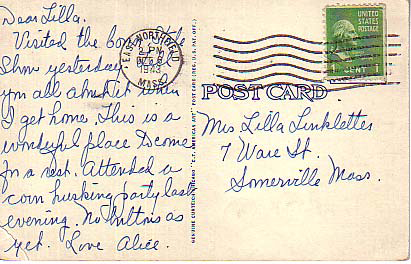 Dear Lilla.
Visited the
Show yesterday
you all about it when
I get home. This is a
wonderful place to come
for a rest. Attended a
corn husking party last
evening. No buttons as
yet. Love Alice.
EAST NORTHFIELD
PM
1943
MASS.
UNITED
STATES
POSTAGE
CENT 1
POST CARD
Miss Lilla Linkletter
7 Ware St.
Somerville Mass.
GENUINE CURTEICH "C.T. AMERICAN ART" POST CARD (REG. U.S. PAT. OFF.)